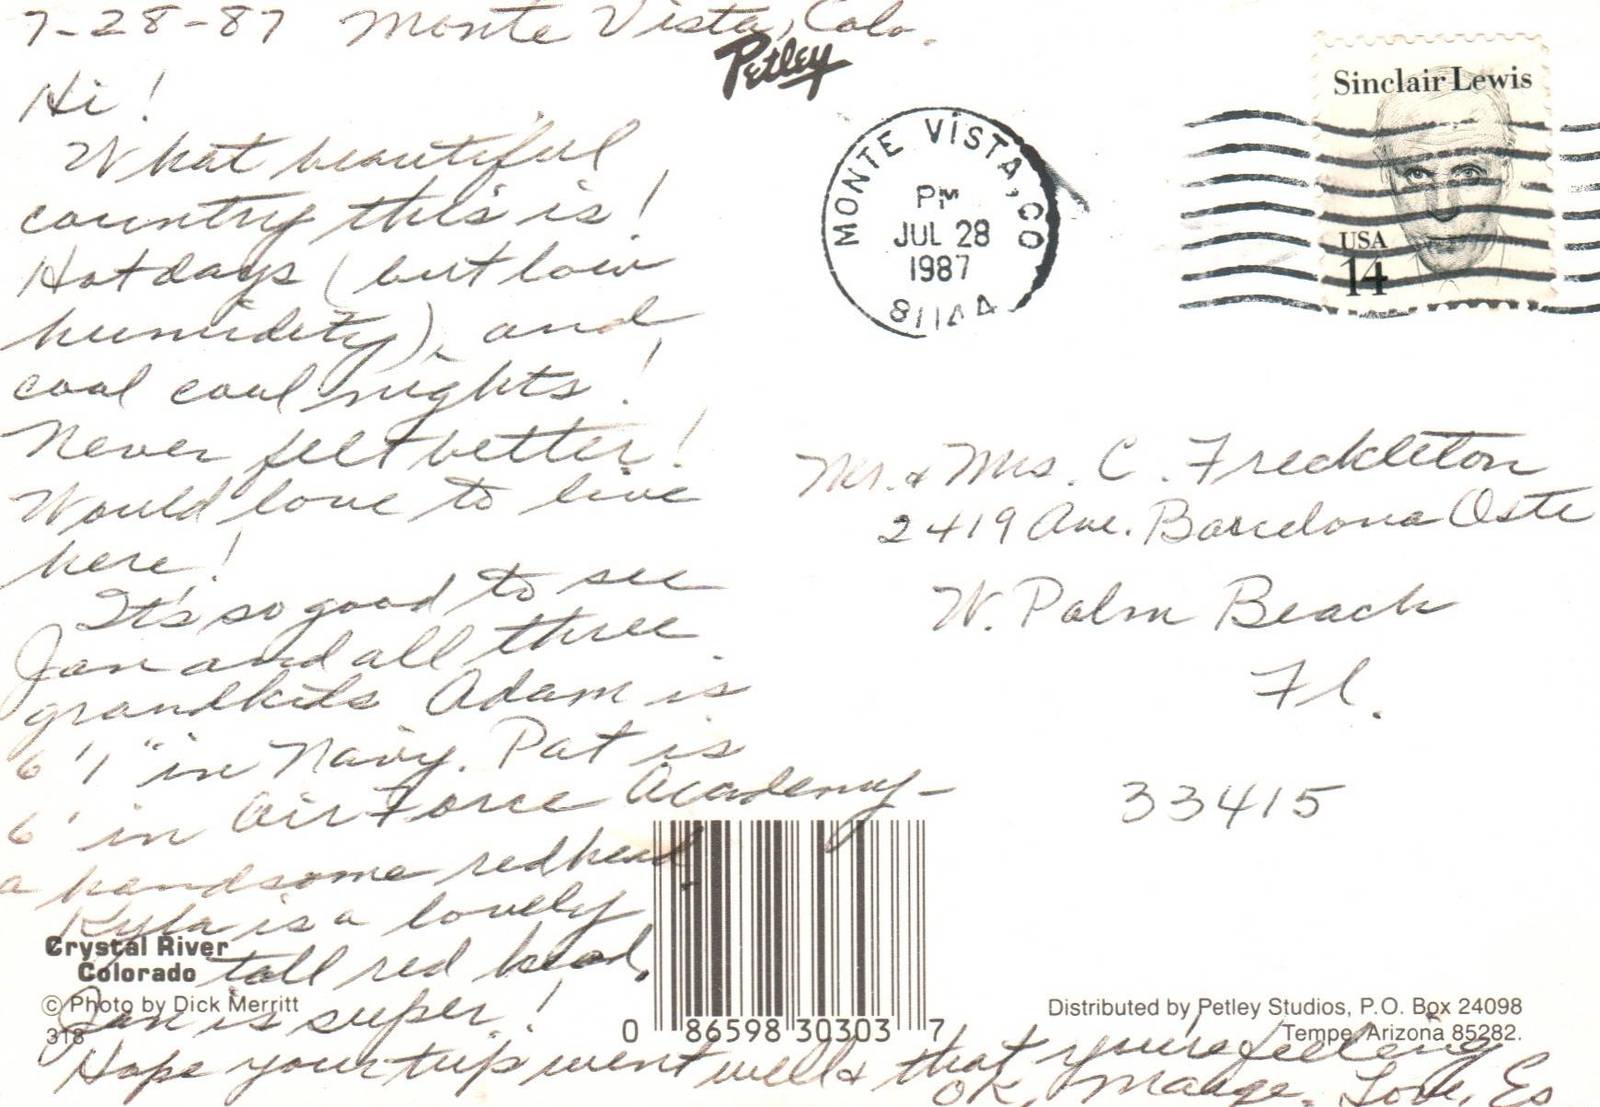 7-28-87 Monte Vista, Colo.
Petley
Hi!
What beautiful
country this is!
Hot days (but low
humidity), and
cool cool nights!
Never felt better!
Would love to live
here!
It's so good to see
Jan and all three
grandkids. Adam is
6'1" in Navy. Pat is
6' in Air Force Academy-
a handsome redhead.
Kyla is a lovely
tall red head.
Jan is super!
Hope your trip went well & that you're feeling
OK, Madge. Love, Es
Crystal River
Colorado
© Photo by Dick Merritt
318
0 86598 30303 7
MONTE VISTA, CO
PM
JUL 28
1987
81144
Sinclair Lewis
USA
14
Mr. & Mrs. C. Freckleton
2419 Ave. Barcelona Oste
W. Palm Beach
Fl.
33415
Distributed by Petley Studios, P.O. Box 24098
Tempe, Arizona 85282.